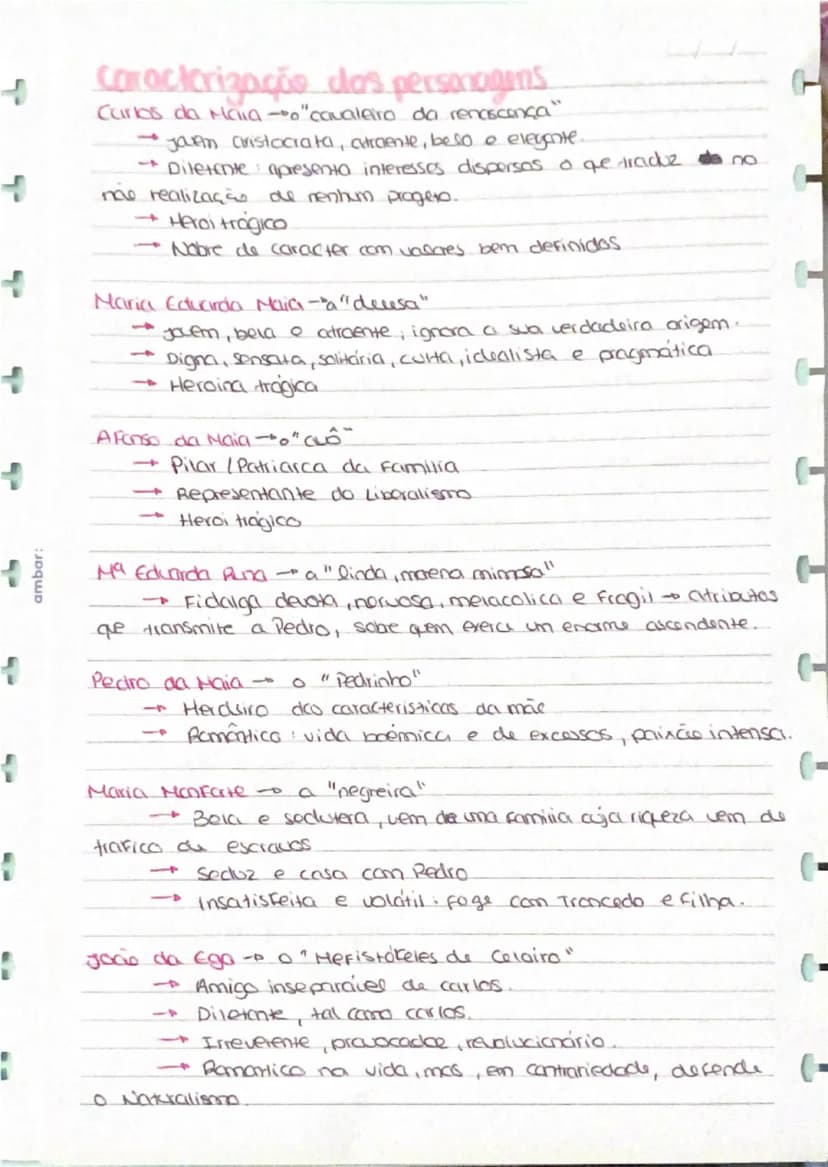 Caracterização dos personagens
Carlos da Maia → o "cavaleiro da renascença"
→ jovem aristocrata, atraente, belo e elegante.
→ Diletante: apresenta interesses dispersos o que traduz na
não realização de nenhum progeto.
→ Heroi trágico
→ Nobre de caracter com valores bem definidos
Maria Eduarda Maia → a "deusa"
→ jovem, bela e atraente, ignora a sua verdadeira origem.
→ Digna, sensata, solitária, culta, idealista e pragmática
→ Heroina trágica
Afonso da Maia → o "avô"
→ Pilar / Patriarca da Familia
→ Representante do Liberalismo
→ Heroi trágico
Mª Eduarda Runa → a "linda, morena mimosa"
→ Fidalga devota, nervosa, melacolica e Fragil → atributos
que transmite a Pedro, sobre quem exerce um enorme ascendente.
Pedro da Maia → o "Pedrinho"
→ Herdeiro das caracteristicas da mãe
→ Romântico: vida boémica e de excessos, paixão intensa.
Maria Monforte → a "negreira"
→ Bela e sedutora, vem de uma familia cuja riqueza vem do
trafico de escravos
→ Seduz e casa com Pedro
→ Insatisfeita e volátil. foge com Trancedo e filha.
João da Ega → o "Mefistófeles de Celairo"
→ Amigo inseparável de carlos.
→ Diletante, tal como carlos.
→ Irreverente, provocador, revolucionário.
→ Romantico na vida, mas, em contrariedade, defende
o Naturalismo.
ambar: